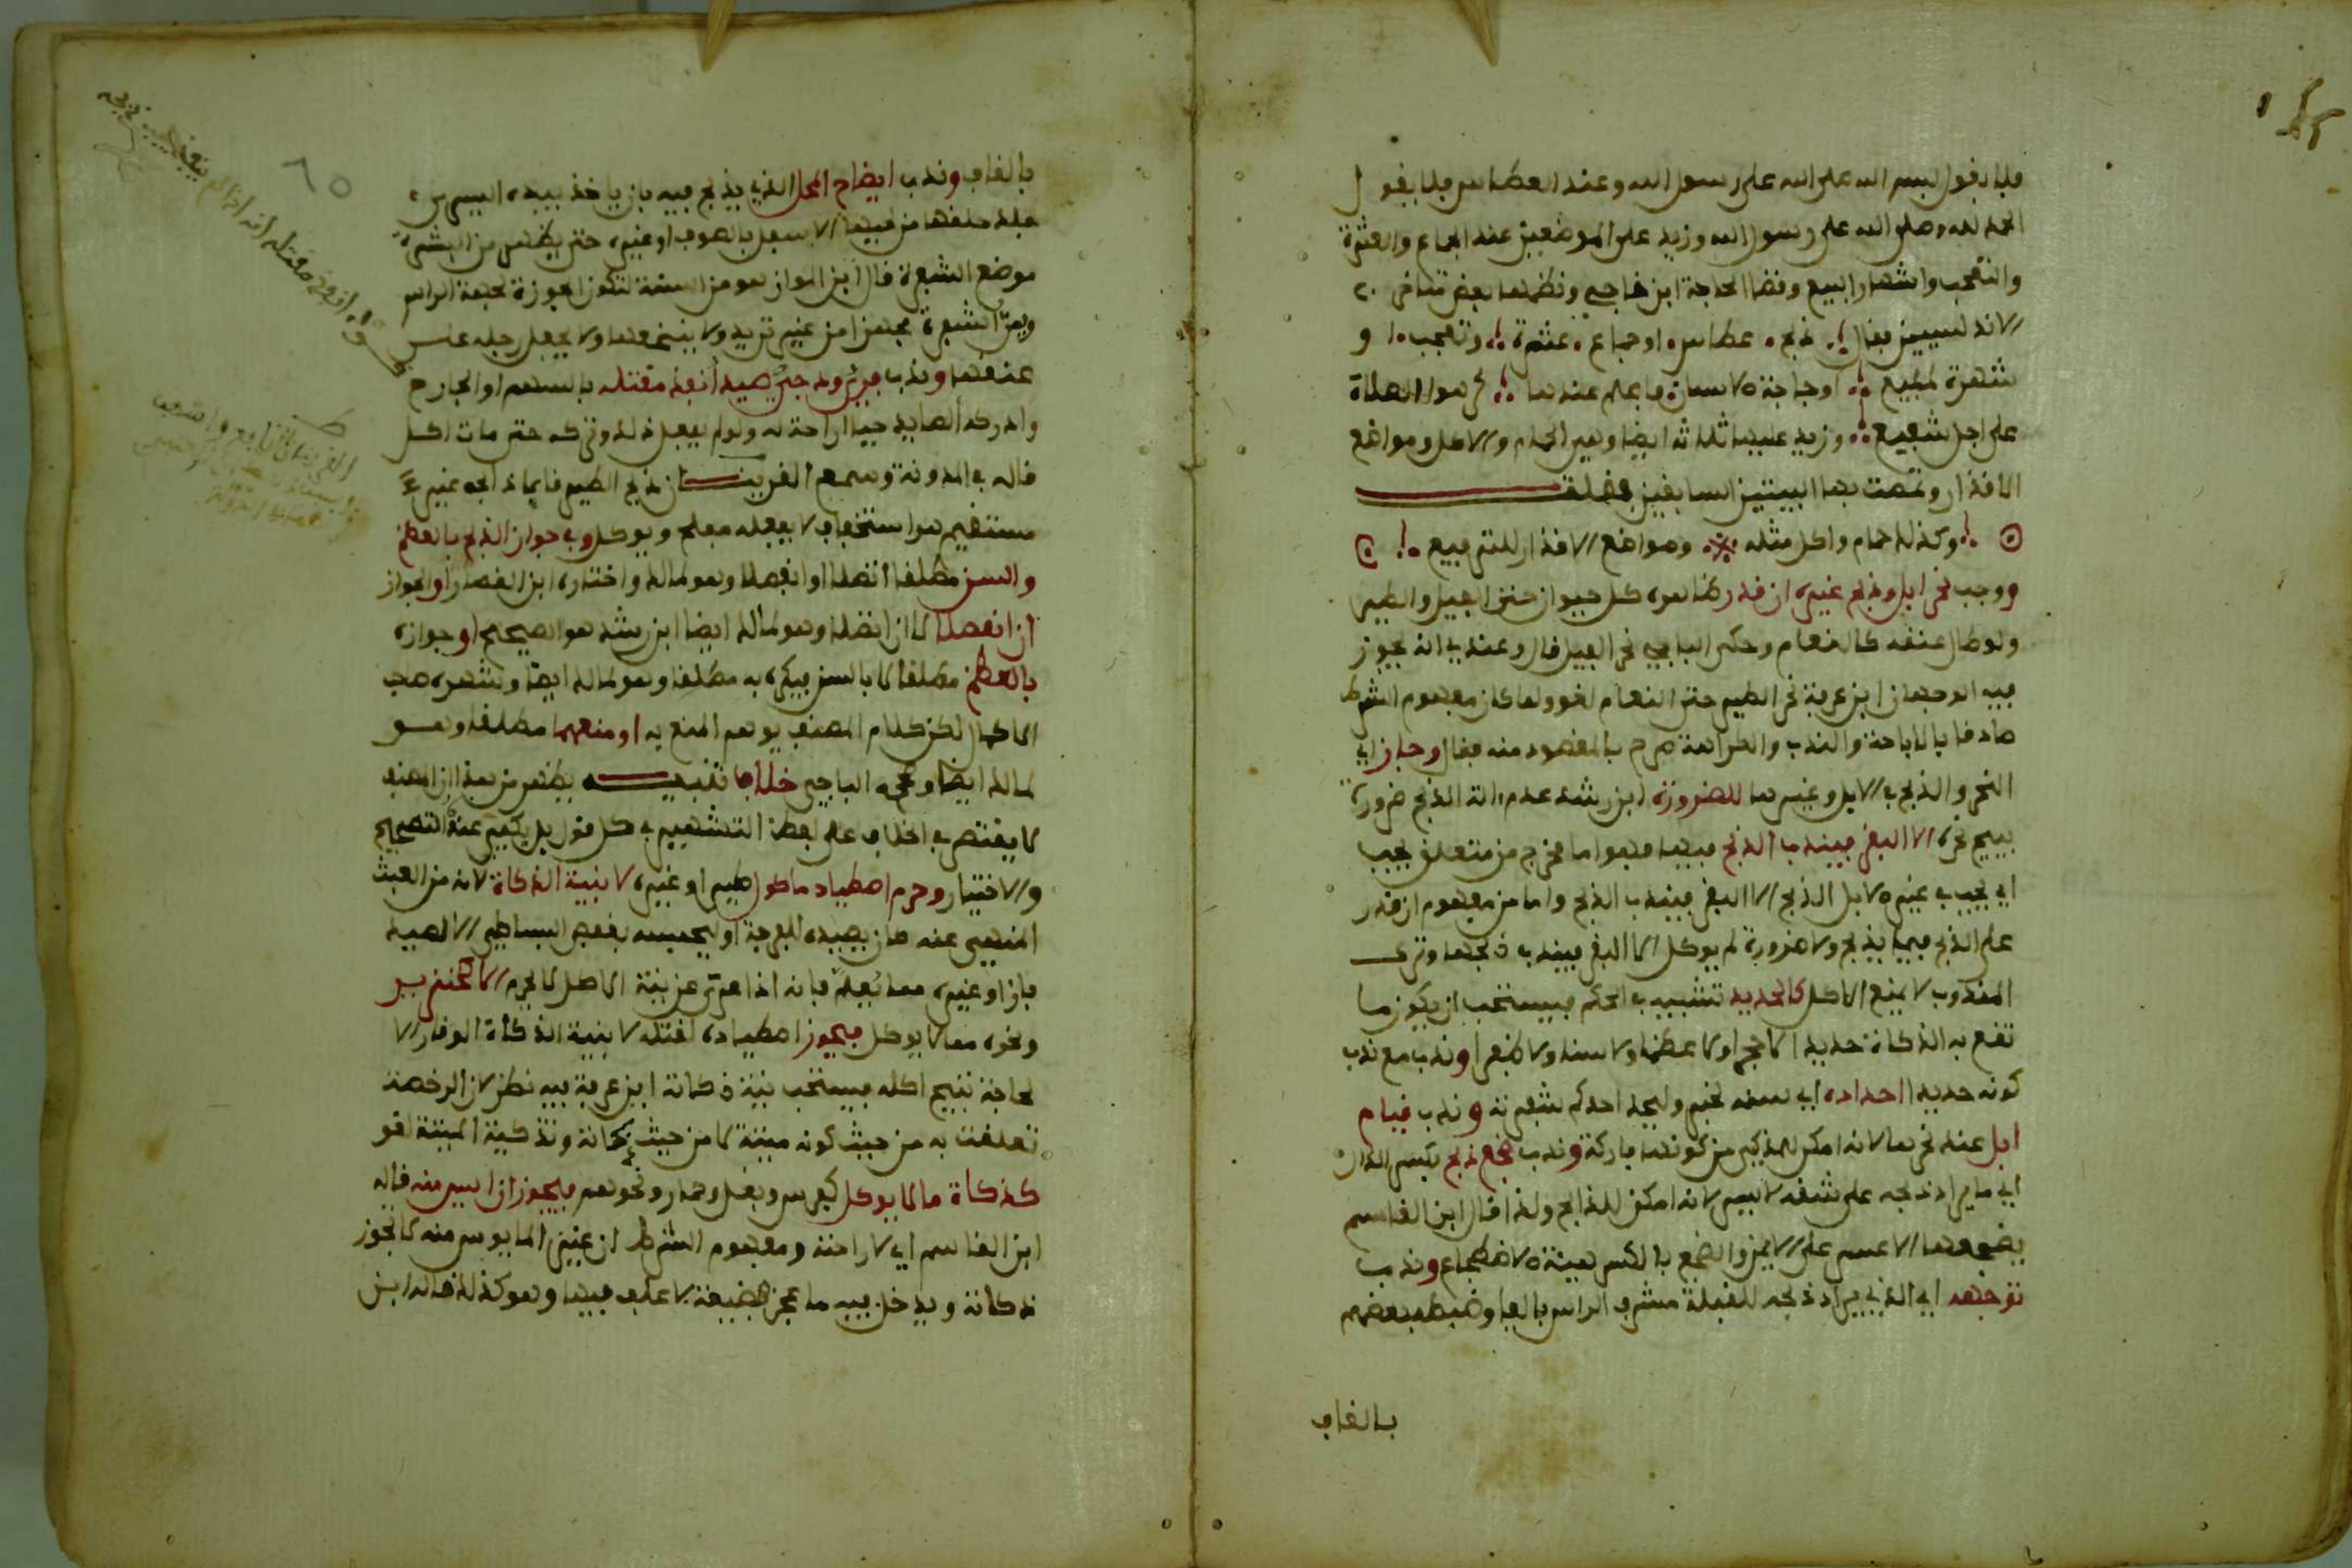 فلا يقول بسم الله صلى الله على رسول الله وعند العطاس فلا يقول
الحمد لله وصلى الله على رسول الله وزيد على الموضعين عند الجماع والعثرة
والتعجب واشهار البيع وقضا الحاجة ابن ناجي ونظمها بعض متاخري
الاندلسيين فقال ذبح عطاس او جماع عثرة وتعجب او
شهرة لمبيع او حاجة الانسان فاعلم عندها كرهوا الصلاة
على اجل شفيع وزيد عليها ثلاثة ايضا وهي الحمام والاكل ومواضع
الاقذار وتممت بها البيتين السابقين فقلت
وكذا لحمام واكل مثله ومواضع الاقذار للترفيع
ووجب نحر ابل وذبح غيره ان قدر ظاهره كل حيوان حتى الفيل والطير
ولو طال عنقه كالنعام وحكى الباجي نحر الفيل قال وعندي انه يجوز
فيه الوجهان ابن عرفة نحر الطير حتى النعام لغو ولما كان مفهوم الشرط
صادقا بالاباحة والندب والكراهة صرح بالمقصود منه فقال وجاز اي
النحر والذبح في الابل وغيرها للضرورة ابن رشد عدم الة الذبح ضرورة
تبيح نحره الا البقر فيندب الذبح فيها وهو اما مخرج من متعلق يجب
اي يجب في غير الابل الذبح الا البقر فيندب الذبح واما من مفهوم ان قدر
على الذبح فيما يذبح ولا ضرورة لم يوكل الا البقر فيندب ذبحها وترك
المندوب لا يمنع الاكل كالحديد تشبيه في الحكم فيستحب ان يكون ما
تقع به الذكاة حديدا لا حجرا ولا عظما ولا سنا ولا ظفرا وندب مع ندب
كونه حديدا احداده اي سنه لخبر وليحد احدكم شفرته وندب قيام
ابل عند نحرها لانه امكن للمذكي من كونها باركة وندب ضجع ذبح بكسر الذال
اي ما يراد ذبحه على شقه الايسر لانه امكن للذابح ولذا قال ابن القاسم
يضجعها الاعسر على الايمن والضجع بالكسر هيئة الاضطجاع وندب
توجهه اي الذي يراد ذبحه للقبلة مشرف الراس بالفا وضبطه بعضهم
بالقاف
بالقاف وندب ايضاح المحل الذي يذبح فيه بان ياخذ بيده اليسرى
جلد حلقها من لحيها الاسفل بالصوف او غيره حتى يظهر من البشرة
موضع الشفرة قال ابن المواز هو من السنة لتكون الجوزة لجهة الراس
ويمر الشفرة مجهزا من غير ترديد ولا ينخعها ولا يجعل رجله على
عنقها وندب فري ودجي صيد انفذ مقتله بالسهم او الجارح
وادركه الصايد حيا اراحة له ولو لم يفعل ذلك وتركه حتى مات اكل
قاله في المدونة وسمع القرينان ذبح الطير قايما ذابحه غير
مستقيم هو استخفاف لا يفعله معلم ويوكل وفي جواز الذبح بالعظم
والسن مطلقا اتصلا او انفصلا وهو لمالك واختاره ابن القصار او الجواز
ان انفصلا لا ان اتصلا وهو لمالك ايضا ابن رشد هو الصحيح او جوازه
بالعظم مطلقا لا بالسن فيكره به مطلقا وهو لمالك ايضا وشهره صاحب
الاكمال لكن كلام المصنف يوهم المنع به او منعهما مطلقا وهو
لمالك ايضا وصححه الباجي خلاف تنبيه يظهر من هذا ان المصنف
لا يقتصر في خلاف على لفظ التشهير في كل قول بل يكفي عنه التصحيح
والاختيار وحرم اصطياد ماكول طير او غيره لا بنية الذكاة لانه من العبث
المنهي عنه كان يصيده للفرجة او ليحبسه بقفص البساطي الا لصيد
باز او غيره مما يعلم فانه اذا عري عن نية الاكل لا يحرم الا كخنزير
ونحوه مما لا يوكل فيجوز اصطياده لقتله لا بنية الذكاة الوقار الا
لحاجة تبيح اكله فيستحب نية ذكاته ابن عرفة فيه نظر لان الرخصة
تعلقت به من حيث كونه ميتة لا من حيث ذكاته وتذكية الميتة لغو
كذكاة ما لا يوكل كفرس وبغل وحمار ونحوهم فيجوز ان ايس منه قاله
ابن القاسم اي لاراحته ومفهوم الشرط ان غير المايوس منه لا تجوز
ذكاته ويدخل فيه ما عجز لضيعة لا علف فيها وهو كذلك قاله ابن